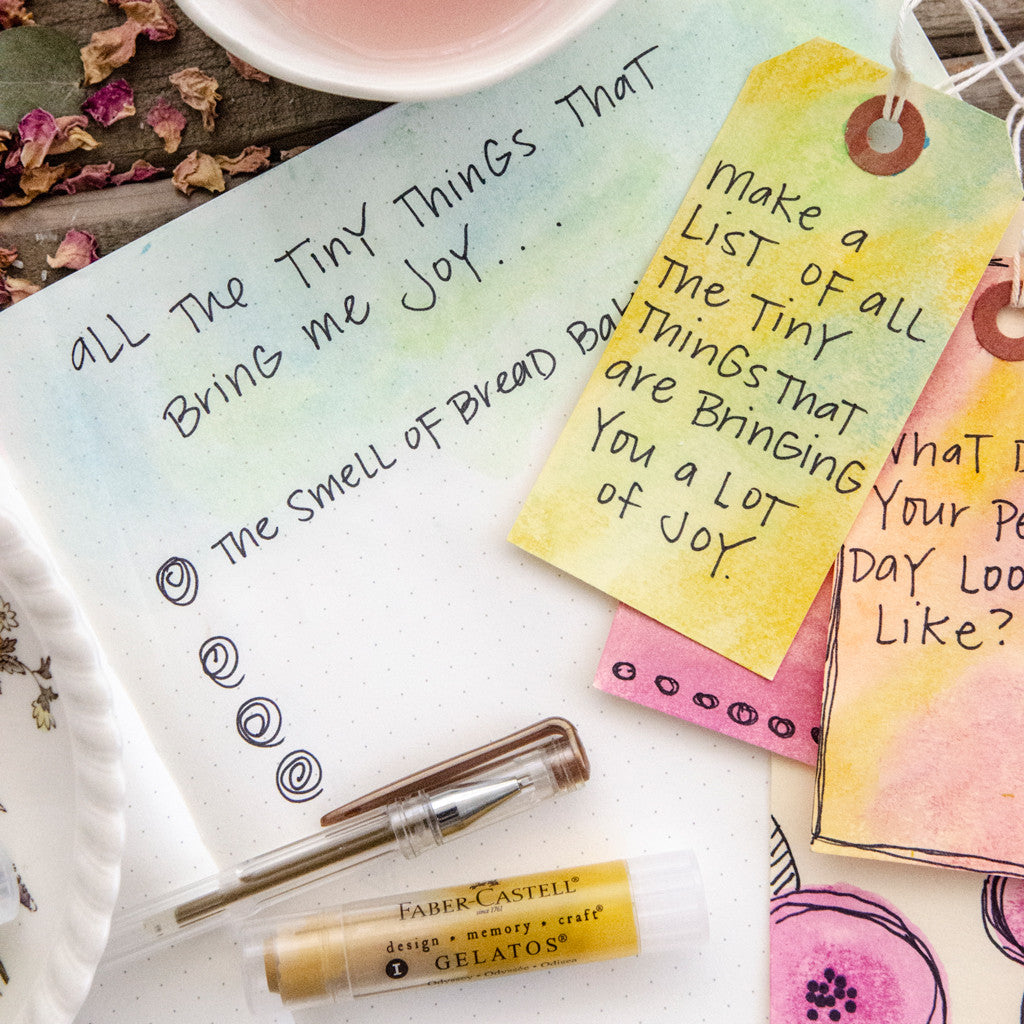 all The Tiny Things That
Bring me Joy...
The smell of Bread
make a
List of all
The Tiny
Things That
are Bringing
You a lot
of Joy.
What
Your
Day
Like?
FABER-CASTELL®
since 1761
design • memory • craft®
1 GELATOS®
Odyssey • Odyssée • Odisea